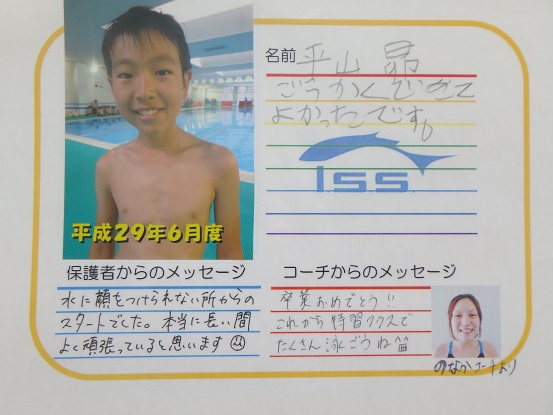 名前 平山 昴
ごうかくできて
よかったです。
I.S.S.
平成29年6月度
保護者からのメッセージ
水に顔をつけられない所からの
スタートでした。本当に長い間
よく頑張っていると思います
コーチからのメッセージ
卒業おめでとう!!
これから特習クラスで
たくさん泳ごうね
のなかコーチより